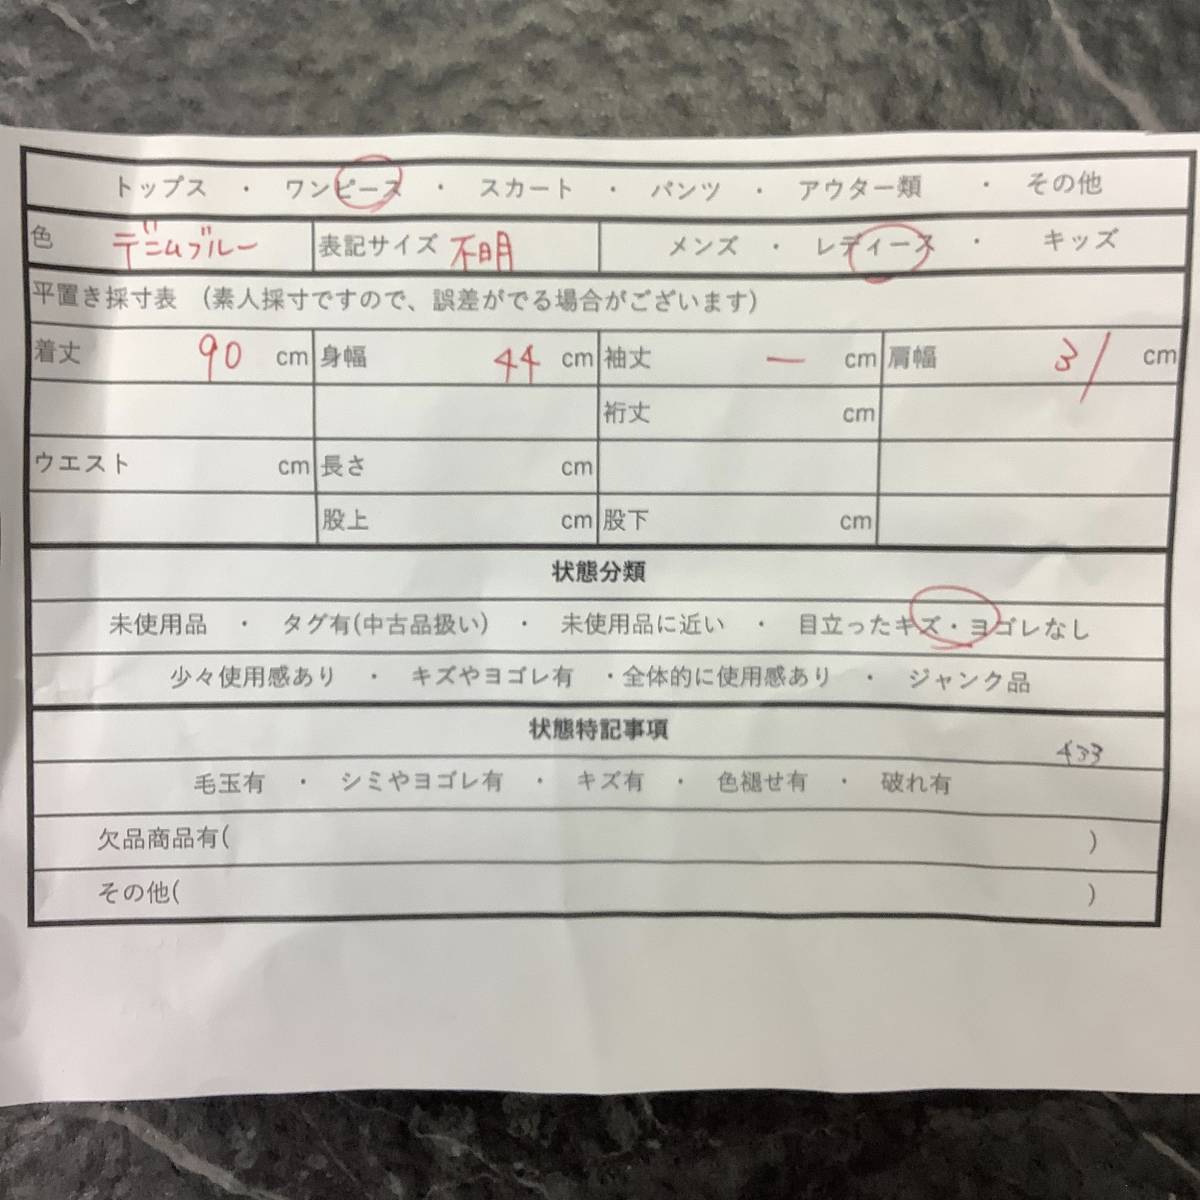 トップス ・ ワンピース ・ スカート ・ パンツ ・ アウター類 ・ その他
色 デニムブルー 表記サイズ 不明 メンズ ・ レディース ・ キッズ
平置き採寸表 (素人採寸ですので、誤差がでる場合がございます)
着丈 90 cm 身幅 44 cm 袖丈 ー cm 肩幅 31 cm
裄丈 cm
ウエスト cm 長さ cm
股上 cm 股下 cm
状態分類
未使用品 ・ タグ有(中古品扱い) ・ 未使用品に近い ・ 目立ったキズ・ヨゴレなし
少々使用感あり ・ キズやヨゴレ有 ・全体的に使用感あり ・ ジャンク品
状態特記事項
433
毛玉有 ・ シミやヨゴレ有 ・ キズ有 ・ 色褪せ有 ・ 破れ有
欠品商品有( )
その他( )